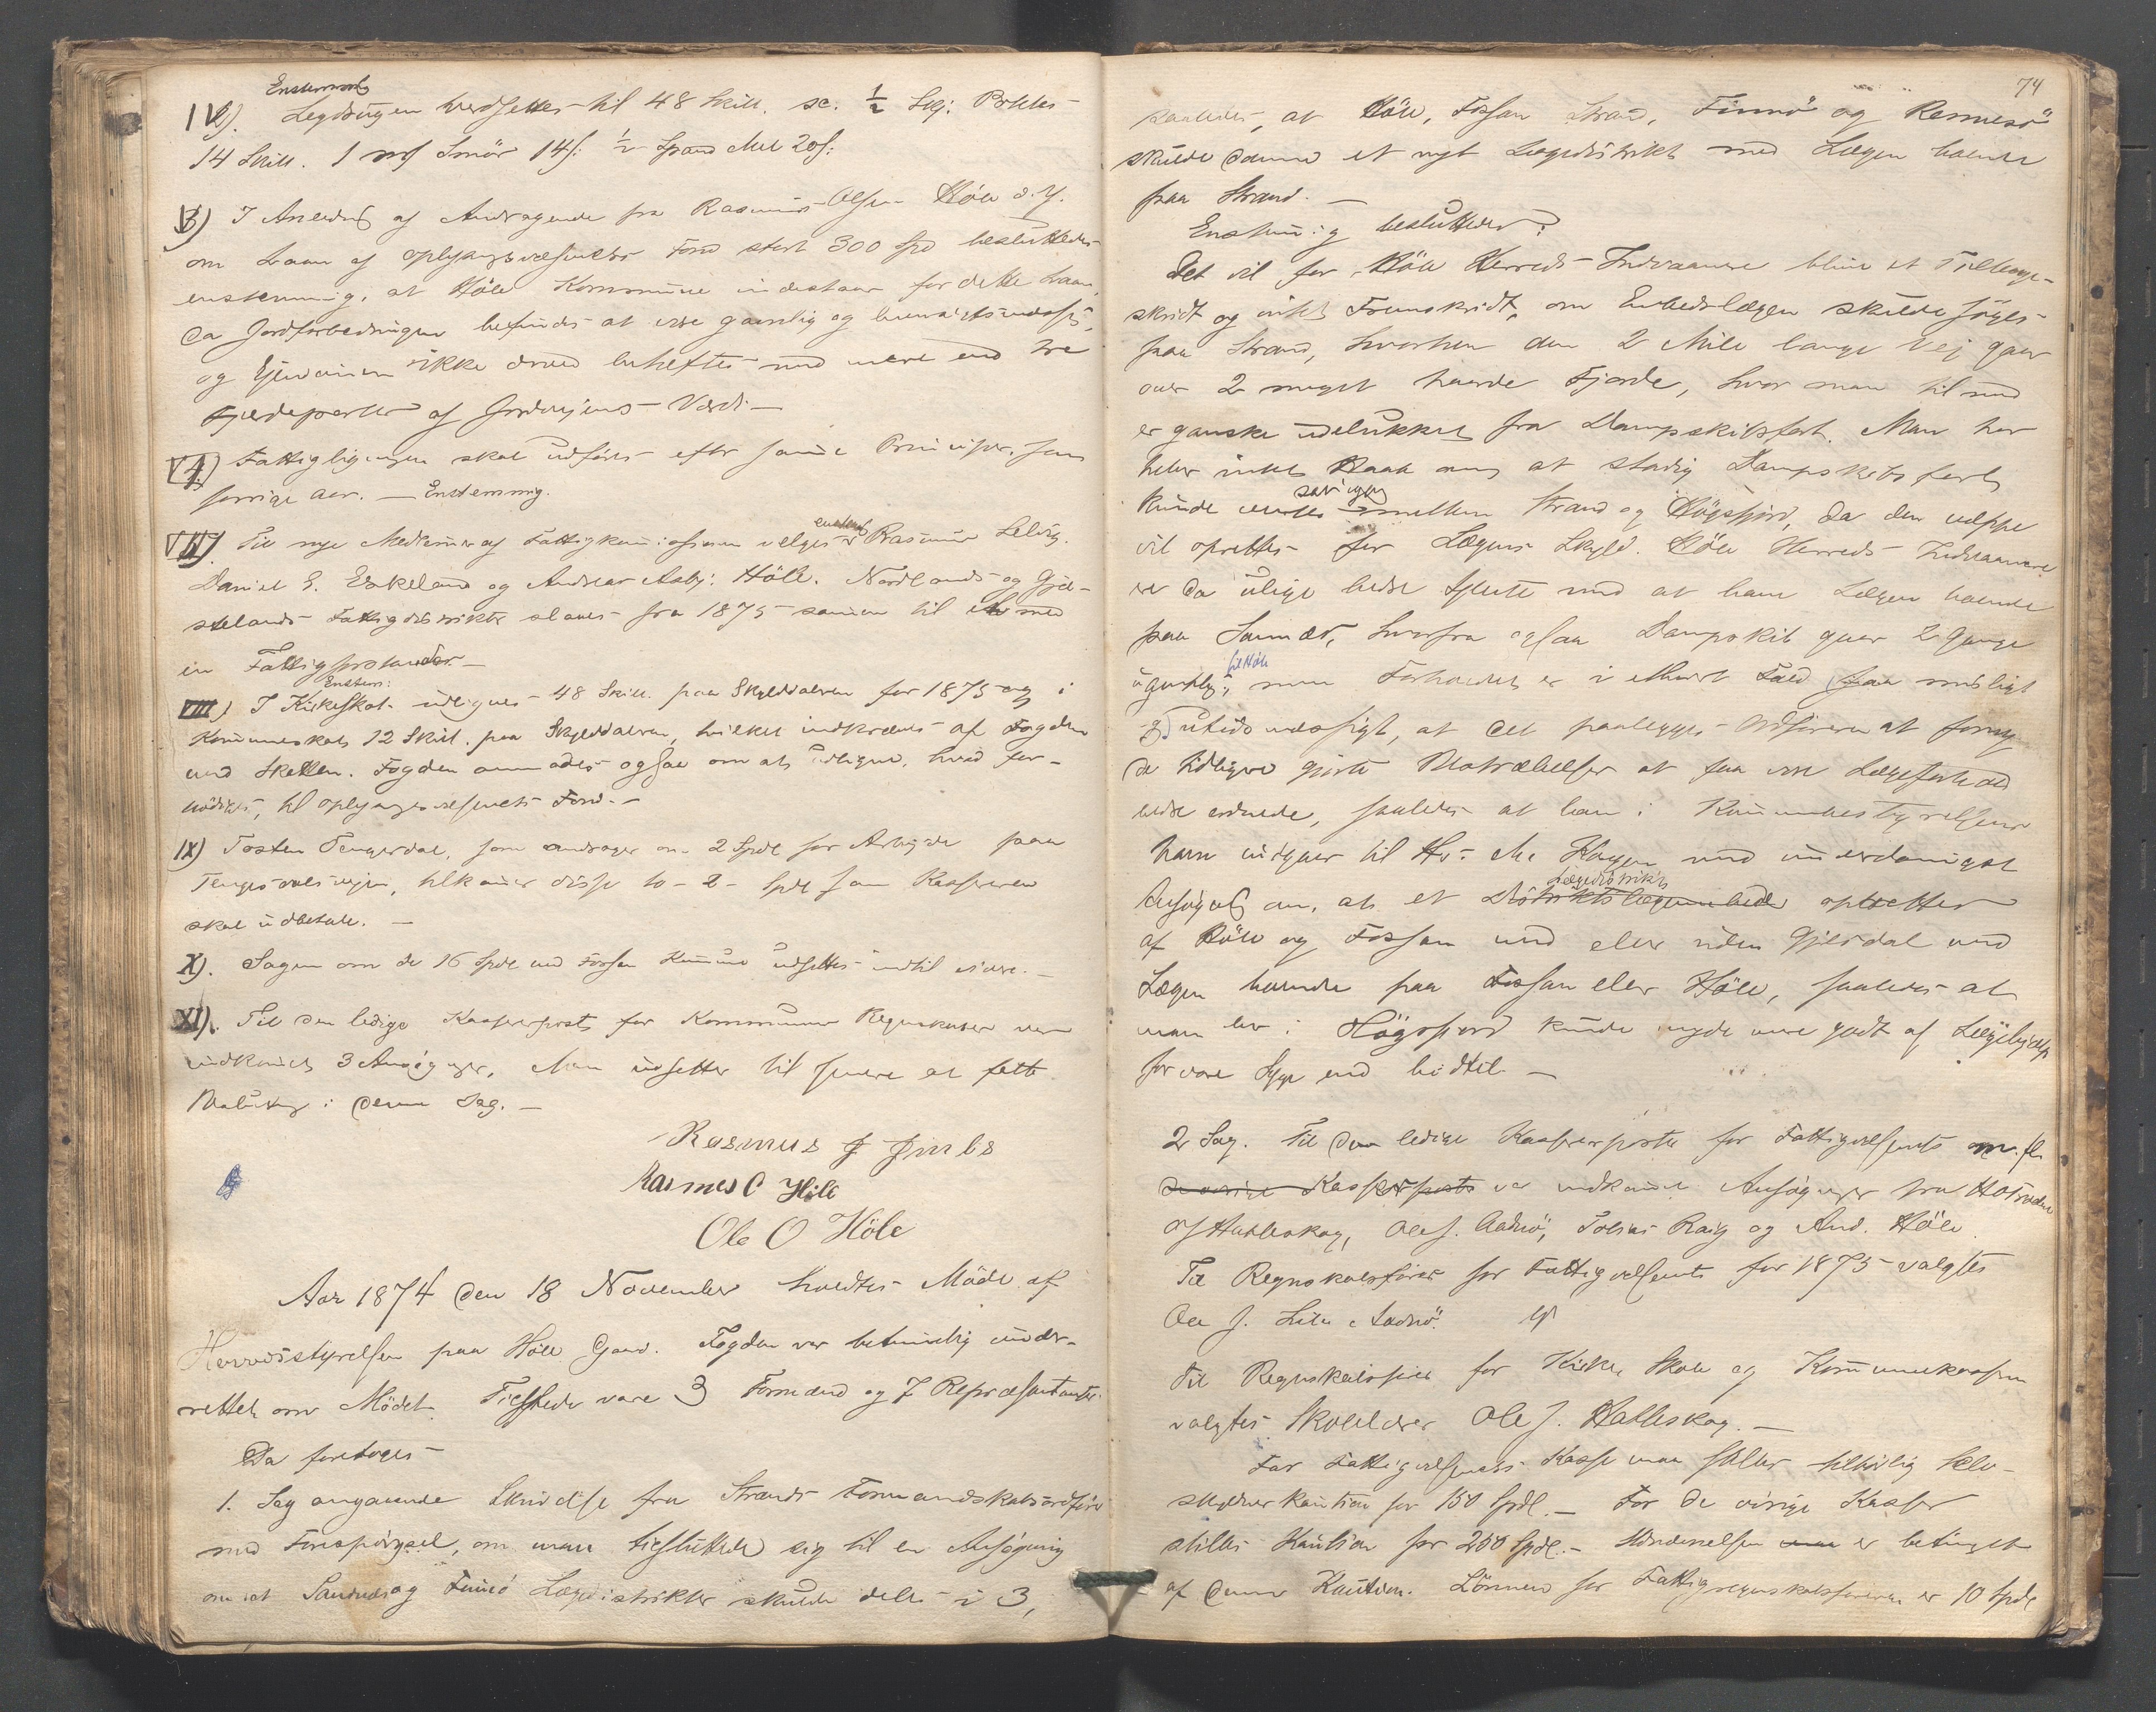 Enstemmig
IV 2). Legdougen verdsettes til 48 Skill. sc. ½ Skj: Poteter
14 Skill. 1 mk Smör 14 s: ½ Spand Mel 20 s:
V 3) I Anledning af Andragende fra Rasmus Olsen Höle d.y.
om Laan af Oplysningsvæsenets Fond stort 300 Spd besluttedes
enstemmig, at Höle Kommune indestaar for dette Laan,
da Jordforbedringen befindes at være gavnlig og hensigtsmæssig,
og Ejendommen ikke derved beheftes med mere end tre
Fjerdeparter af Jordvejens Værdi —
VI 4) Fattigligningen skal udföres efter samme Principer, som
forrige Aar. — Enstemmig.
VII). Til nye Medlemmer af Fattigkommissionen vælges enstemmig Rasmus Selvig.
Daniel E. Eskeland og Andreas Asbj: Höle. Nordlands og Gjö-
stelands Fattigdistrikter slaaes fra 1875 sammen til et med
en Fattigforstander. —
Enstem:
VIII) I Kirkeskat udlignes 48 Skill. paa Skylddaleren for 1875 og i
Kommuneskat 12 Skill. paa Skylddaleren, hvilket indkræves af Fogden
med Skatten. Fogden anmodes ogsaa om at udligne, hvad for-
nödiges, til Oplysningsvæsenets Fond. —
IX) Tosten Tengesdal, som andrager om 2 Spdl for Arbejde paa
Tengesdalsvejen, tilkommer disse to – 2 – Spdl som Kassereren
skal udbetale. —
X). Sagen om de 16 Spdl med Fossan Kommune udsettes indtil videre. —
XI). Til den ledige Kassererpost for Kommunens Regnskaber var
indkommet 3 Ansögninger. Man udsetter til senere at fatte
Beslutning i denne Sag. —
Rasmus J Jmbs
Rasmus O Höle
Ole O Höle
Aar 1874 den 18 November holdtes Möde af
Herredsstyrelsen paa Höle Gaard. Fogden var betimelig under-
rettet om Mödet. Tilstede vare 3 Formænd og 7 Repræsentanter.
Da foretoges
1. Sag angaaende Skrivelse fra Strands Formandskabsordförer
med Forespörgsel, om man tilsluttede sig til en Ansögning
om at Sandnes og Finnö Lægedistrikter skulde deles i 3,
74
saaledes, at Höle, Fossan Strand, Finnö og Rennesö
skulde danne et nyt Lægedistrikt med Lægen boende
paa Strand. —
Enstemmig besluttedes:
Det vil for Höle Herreds Indvaanere blive et Tilbage-
skridt og intet Fremskridt, om Embedslægen skulde söges
paa Strand, hvorhen den 2 Mile lange Vej gaar
over 2 meget haarde Fjorde, hvor man til med
er ganske udelukket fra Dampskibsfart. Man har
heller intet Haab om, at stadig Dampskibsfart
kunde ventes mellem Strand og Högsfjord, da den neppe
vil oprettes for Lægens Skyld. Höle Herreds Indvaanere
er da ulige bedre tjente med at have Lægen boende
paa Sannæs, hvorfra ogsaa Dampskib gaar 2 Gange
til Höle
ugentlig; men Forholdet er i ethvert Fald saa misligt
og utidsmæssigt, at det paalegges Ordföreren at forny
de tidligere gjorte Bestræbelser at faa vore Lægeforhold
bedre ordnede, saaledes at han i Kommunebestyrelsens
Navn indgaar til Hs: Ma: Kongen med underdanigst
Lægedistrikt
Ansögning om, at et Distriktslægeembede oprettes
af Höle og Fossan med eller uden Gjesdal med
Lægen boende paa Fossan eller Höle, saaledes at
man her i Högsfjord kunde nyde mere godt af Lægehjælp
for vore Syge end hidtil. —
2 Sag. Til den ledige Kassererpost for Fattigvæsenet m. fl.
de övrige Kassererposter var indkomne Ansögninger fra
Ole J. Aadnö, Tobias Raig og And. Höle.
Til Regnskabsförer for Fattigvæsenet for 1875 valgtes
Ole J. Lille Aadnö.
Til Regnskabsförer for Kirke, Skole og Kommunekassen
valgtes Skolelærer Ole J. Halleskog. —
For Fattigvæsenets Kasse maa stilles tilbörlig Selv-
skyldnerkaution for 150 Spdl. — For de övrige Kasser
stilles Kaution for 200 Spdl. — Udnævnelsen er betinget
af denne Kaution. Lönnen for Fattigregnskabsföreren er 10 Spdl